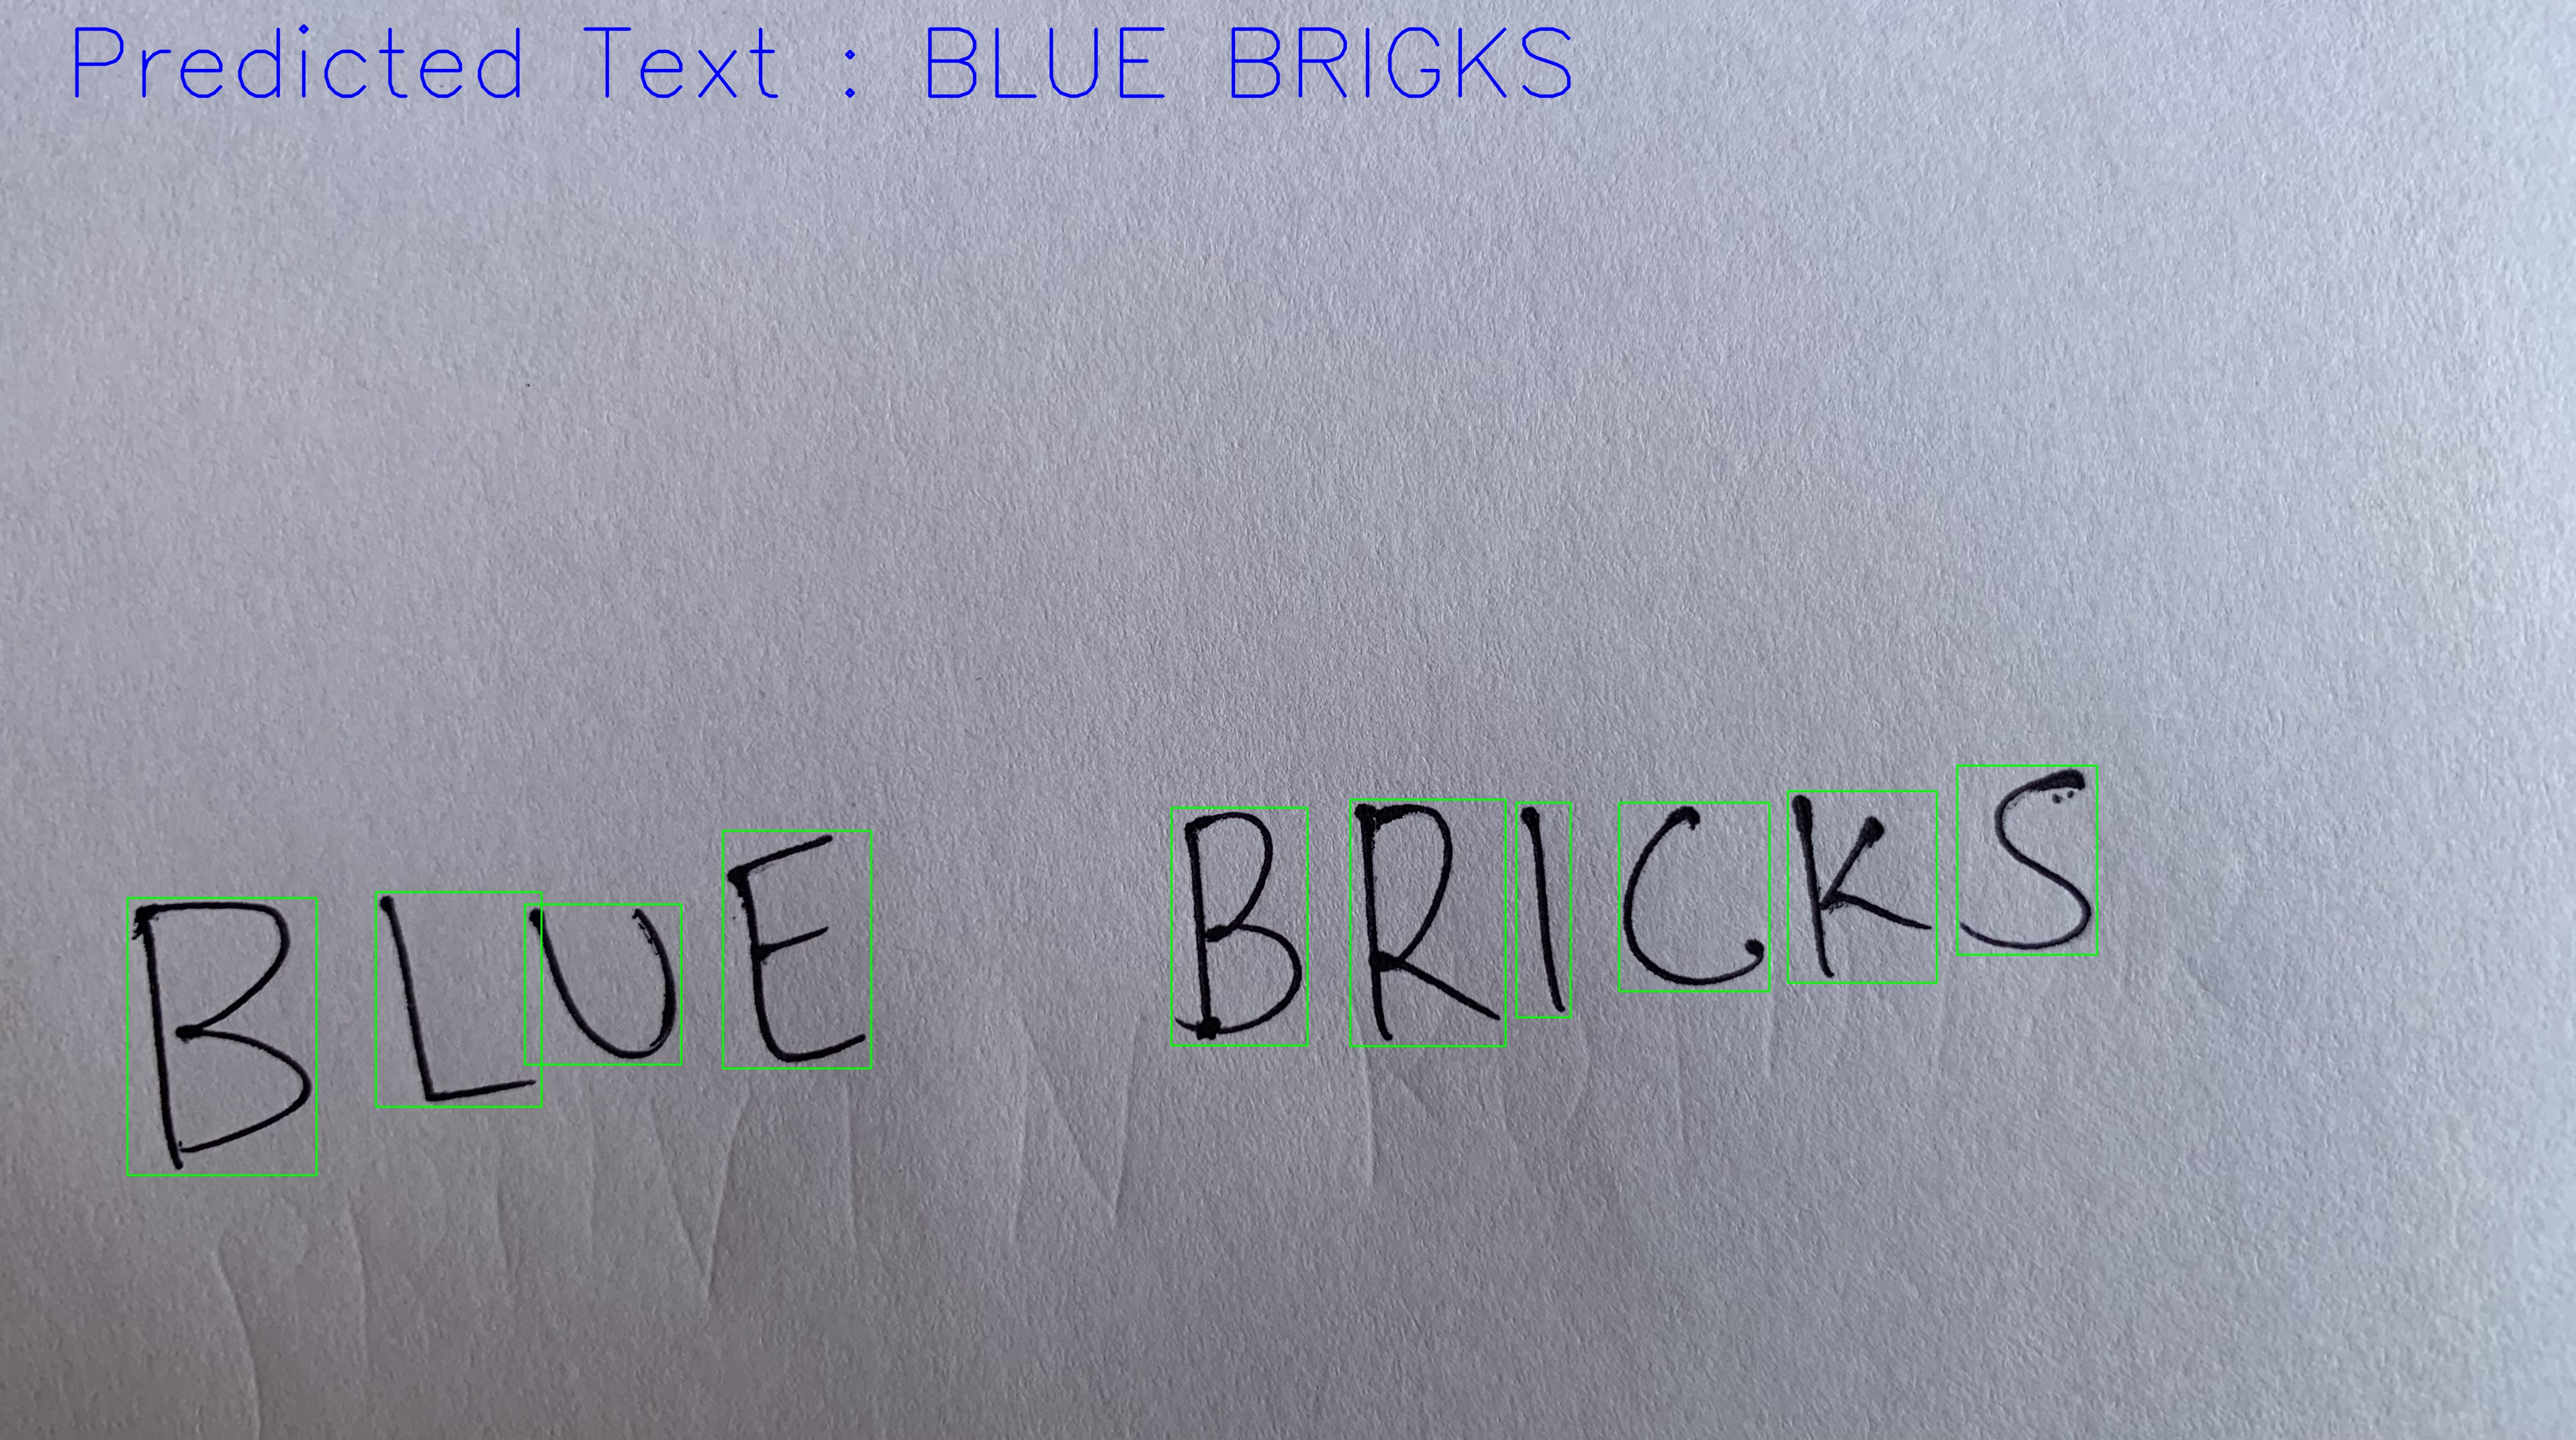 Predicted Text : BLUE BRIGKS
BLUE BRICKS